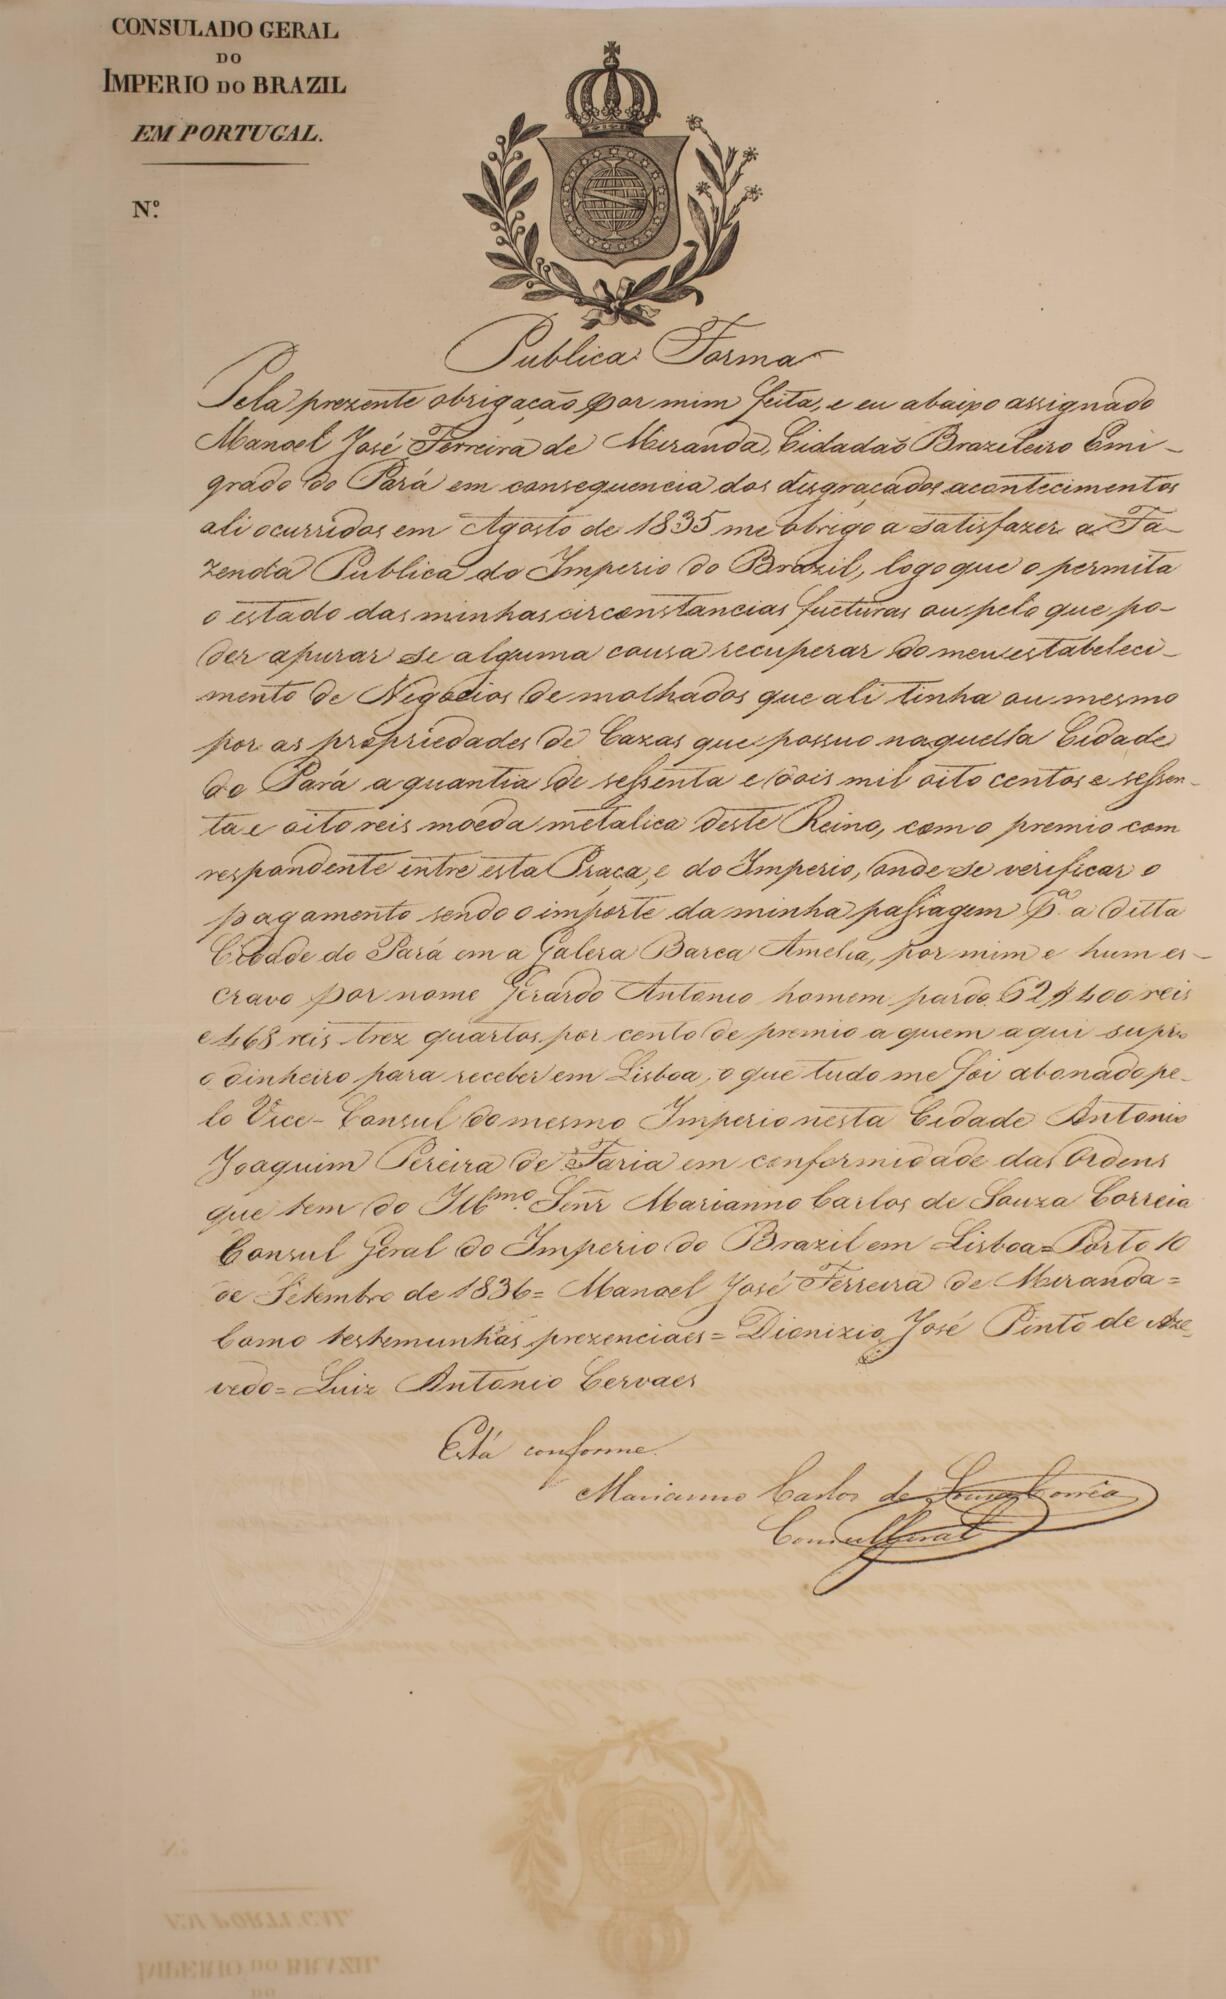 CONSULADO GERAL
DO
IMPERIO DO BRAZIL
EM PORTUGAL.
Nº.
Publica Forma
Pela prezente obrigação por mim feita, e eu abaixo assignado
Manoel José Ferreira de Miranda, Cidadaõ Brazileiro Emi-
grado do Pará em consequencia dos disgraçados acontecimentos
ali ocurridos em Agosto de 1835 me obrigo a satisfazer a Fa-
zenda Publica do Imperio do Brazil, logo que o permita
o estado das minhas circonstancias fucturas ou pelo que po-
der apurar se alguma cousa recuperar do meu estabeleci-
mento de Negocios de molhados que ali tinha ou mesmo
por as propriedades de Cazas que possuo naquella Cidade
do Pará a quantia de sessenta e dois mil oito centos e sessen-
ta e oito reis moeda metalica deste Reino, com o premio corr
respondente entre esta Praça, e do Imperio, onde se verificar o
pagamento sendo o importe da minha passagem pª a ditta
Cidade do Pará em a Galera Barca Amelia, por mim e hum es-
cravo por nome Gerardo Antonio homem pardo. 62$400 reis
e 468 reis trez quartos por cento de premio a quem aqui supriu
o dinheiro para receber em Lisboa, o que tudo me foi abonado pe-
lo Vice-Consul do mesmo Imperio nesta Cidade Antonio
Joaquim Pereira de Faria em conformidade das Ordens
que tem do Illmo. Senr Marianno Carlos de Souza Correia
Consul Geral do Imperio do Brazil em Lisboa = Porto 10
de Setembro de 1836 = Manoel José Ferreira de Miranda =
Como testemunhas prezenciaes = Dionizio José Pinto de Aze-
vedo = Luiz Antonio Cervaes
Está conforme.
Marianno Carlos de Souza Corrêa
Consul Geral